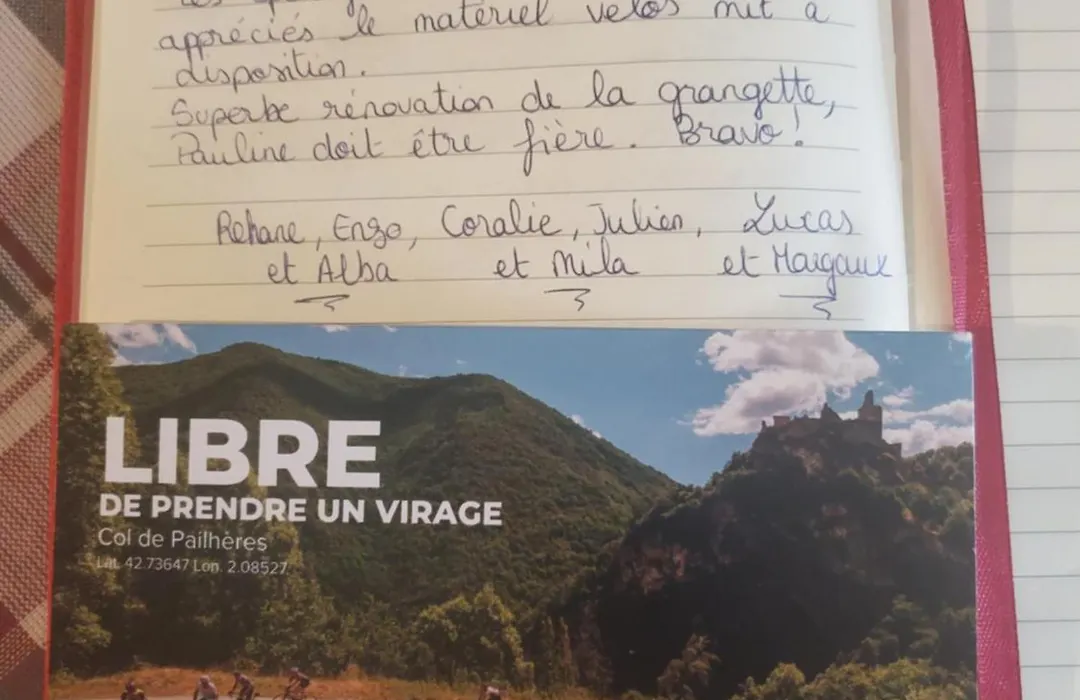 appréciés le matériel vélos mit à
disposition.
Superbe rénovation de la grangette,
Pauline doit être fière. Bravo !
Rehane, Enzo, Coralie, Julien, Lucas
et Alba et Mila et Margaux
LIBRE
DE PRENDRE UN VIRAGE
Col de Pailhères
Lat. 42.73647 Lon. 2.08527